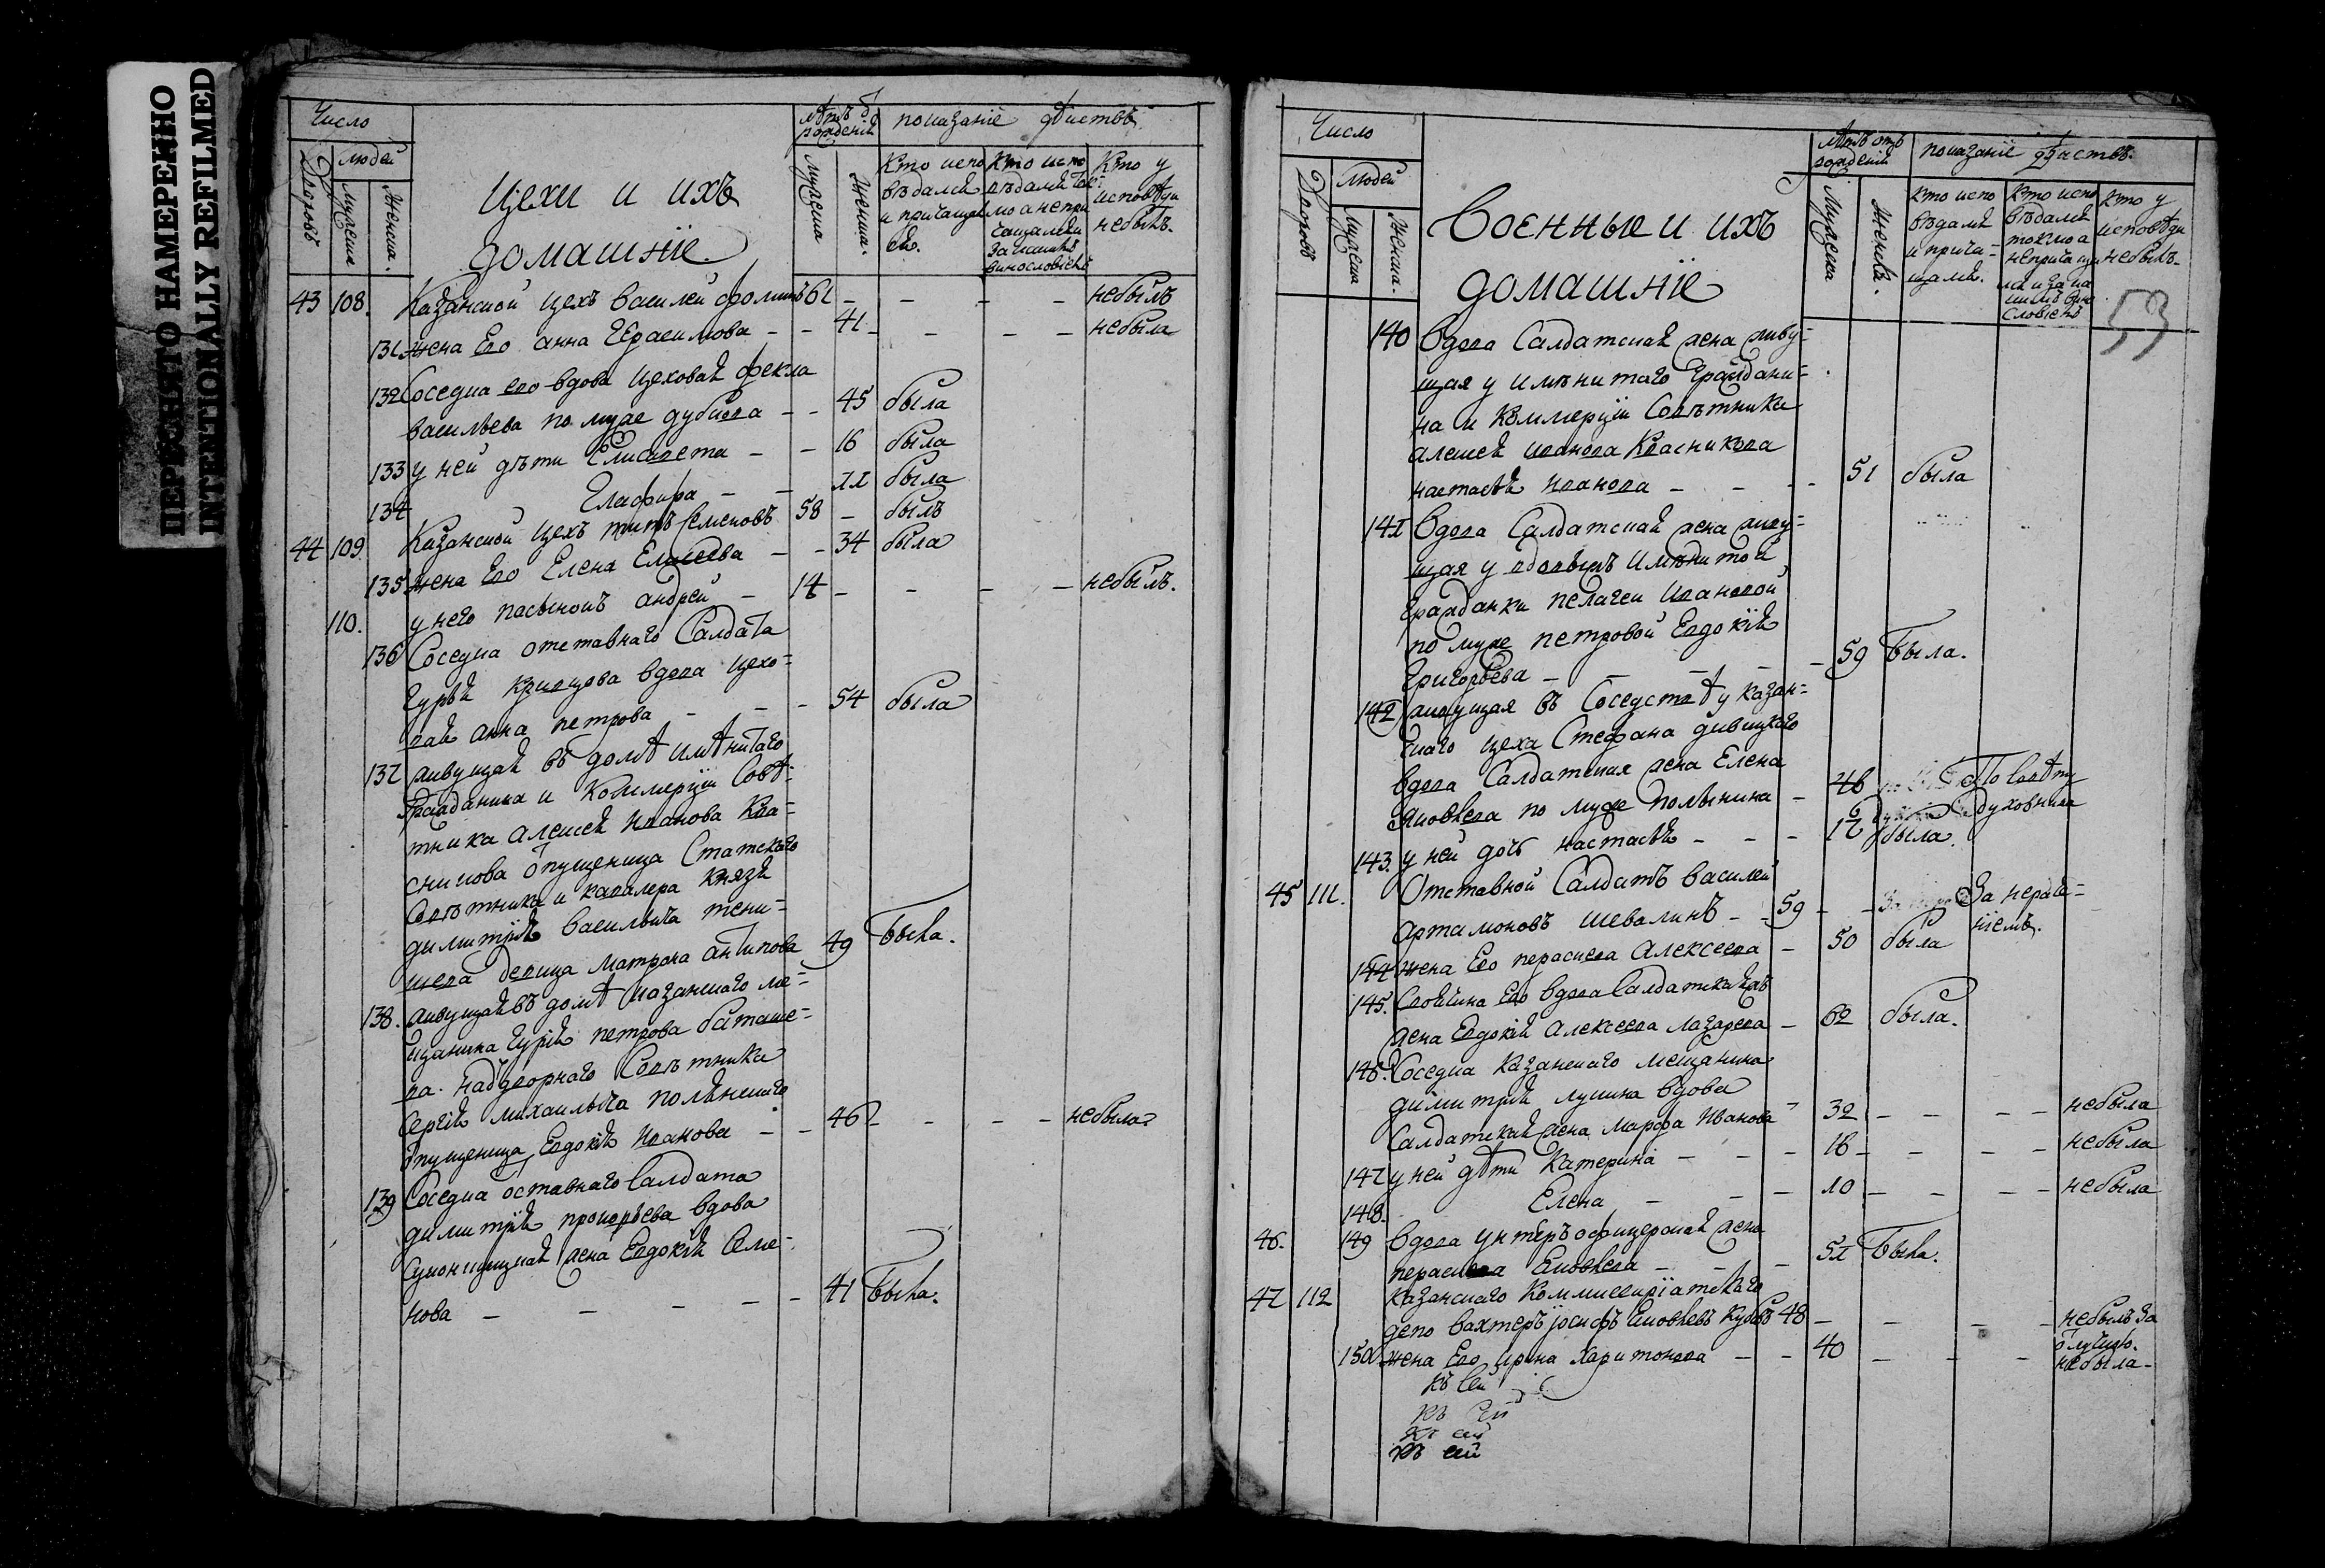 ПЕРЕСНЯТО НАМЕРЕННО
INTENTIONALLY REFILMED
Число
людей
Дворовъ
Мужеска
Женска.
Цехи и ихъ
домашнїе.
Лѣтъ от рожденїя
Мужеска
Женска.
показанїе дѣйствъ.
Кто испо вѣдался и причащался.
Кто испо вѣдался ток мо а непри чащался и за какимъ винословїемъ
Кто у исповѣди небылъ.
43 108. Казанской цехъ василей фоминъ 61 – – – – небылъ
131 жена Его анна Герасимова – – 41 – – – – небыла
132 Соседка его вдова цеховая фекла
васильева по муже дубкова – – 45 была
133 у ней дѣти Елисавета – – 16 была
134 Глафира – – 11 была
44 109. Казанской цехъ титъ Семеновъ 58 – былъ
135 жена Его Елена Елисеева – – 34 была
110. у него пасынокъ андрей – 14 – – – – небылъ.
136 Соседка отставнаго Салдата
Гурья кривцова вдова цехо=
вая анна петрова – – – 54 была
137 живущая въ домѣ имѣнитаго
Гражданина и Коммерцїи Совѣ=
тника Алексея иванова Ква=
сникова отпущеница Статскаго
Совѣтника и кавалера Князя
димитрїя васильича тени=
шева девица матрона антипова 49 была.
138. живущая въ домѣ казанскаго ме=
щанина Гурїя петрова баташе=
ва. надворнаго Совѣтника
Сергїя михаилыча полянскаго
отпущеница Евдокїя иванова – – 46 – – – – небыла
139 Соседка оставнаго Салдата
димитрїя прокорьева вдова
жена Евдокїя Семе=
нова – – – – – 41 была.
Число
людей
Дворовъ
Мужеска
Женска.
Военные и ихъ
домашнїе
Лѣтъ отъ рожденїя
Мужеска
Женска.
показанїе дѣйствъ.
Кто испо вѣдался и прича= щался.
Кто испо вѣдался токмо а непричащал ся и за ка кимъ вино словїемъ
Кто у исповѣди небылъ.
53
140 Вдова Салдатская жена живу=
щая у имѣнитаго Граждани=
на и Коммерцїи Совѣтника
алексея иванова Квасникова
настасья иванова – – – 51 была
141 Вдова Салдатская жена живу=
щая у вдовы имѣнитой
Гражданки пелагеи ивановой
по муже петровой Евдокїя
Григорьева – – – – – 59 была.
142 живущая въ Соседствѣ у казан=
скаго цеха Стефана дивицкаго
вдова Салдатская жена Елена
Яковлева по муже полынина – 46 По Совѣту
духовника
143. у ней дочь настасья – – – 17 была.
45 111. Отставной Салдатъ василей
артамоновъ шевалинъ – – 59 – – За нераде=
нїемъ.
144 жена Его параскева Алексеева – 50 была
145. Своячина Его вдова Салдатская
жена Евдокїя алексеева лазарева – 62 была.
146. Соседка казанскаго мещанина
димитрїя лукина вдова
Салдатская жена марфа иванова – 32 – – – – небыла
147 у ней дѣти Катерина – – – 16 – – – – небыла
148. Елена – – – 10 – – – – небыла
46. 149 вдова унтеръ офицерская жена
параскева Яковлева – – – 51 была.
47 112 Казанскаго Коммисарїатскаго
депо вахтеръ іосифъ Яковлевъ 48 – – – – небылъ за
отлучкою.
150 жена Его ирина Харитонова – – 40 – – – небыла –
къ сей
къ сей
къ сей
къ сей